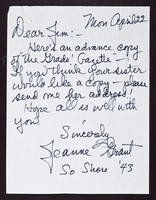 Mon April 22
Dear Jim:-
Here's an advance copy
of the Grads' Gazette -!
If you think your sister
would like a copy - please
send me her address!
Hope all is well with
you!
Sincerely,
Jeanne Grant
So Shore '43